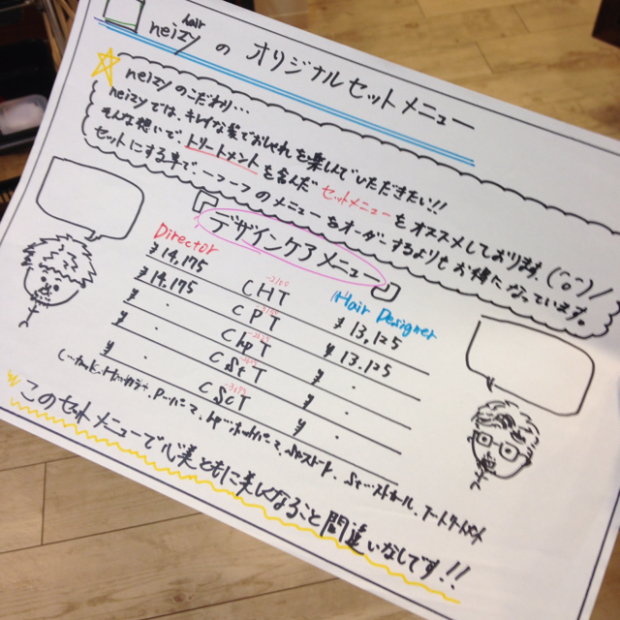 hair
neizy の オリジナルセットメニュー
neizy のこだわり…
neizyでは、キレイな髪でおしゃれを楽しんでいただきたい!!
そんな想いで、トリートメントを含んだ セットメニューをオススメしております。
セットにする事で、一つ一つのメニューをオーダーするよりもお得になっています。
デザインケアメニュー
Director
Hair Designer
¥14,175 CHT ¥13,125
¥14,175 CPT ¥13,125
¥ . ChpT ¥ .
¥ . CStT ¥ .
¥ . CScT ¥ .
このセットメニューで心美ともに美しくなること間違いなしです!!